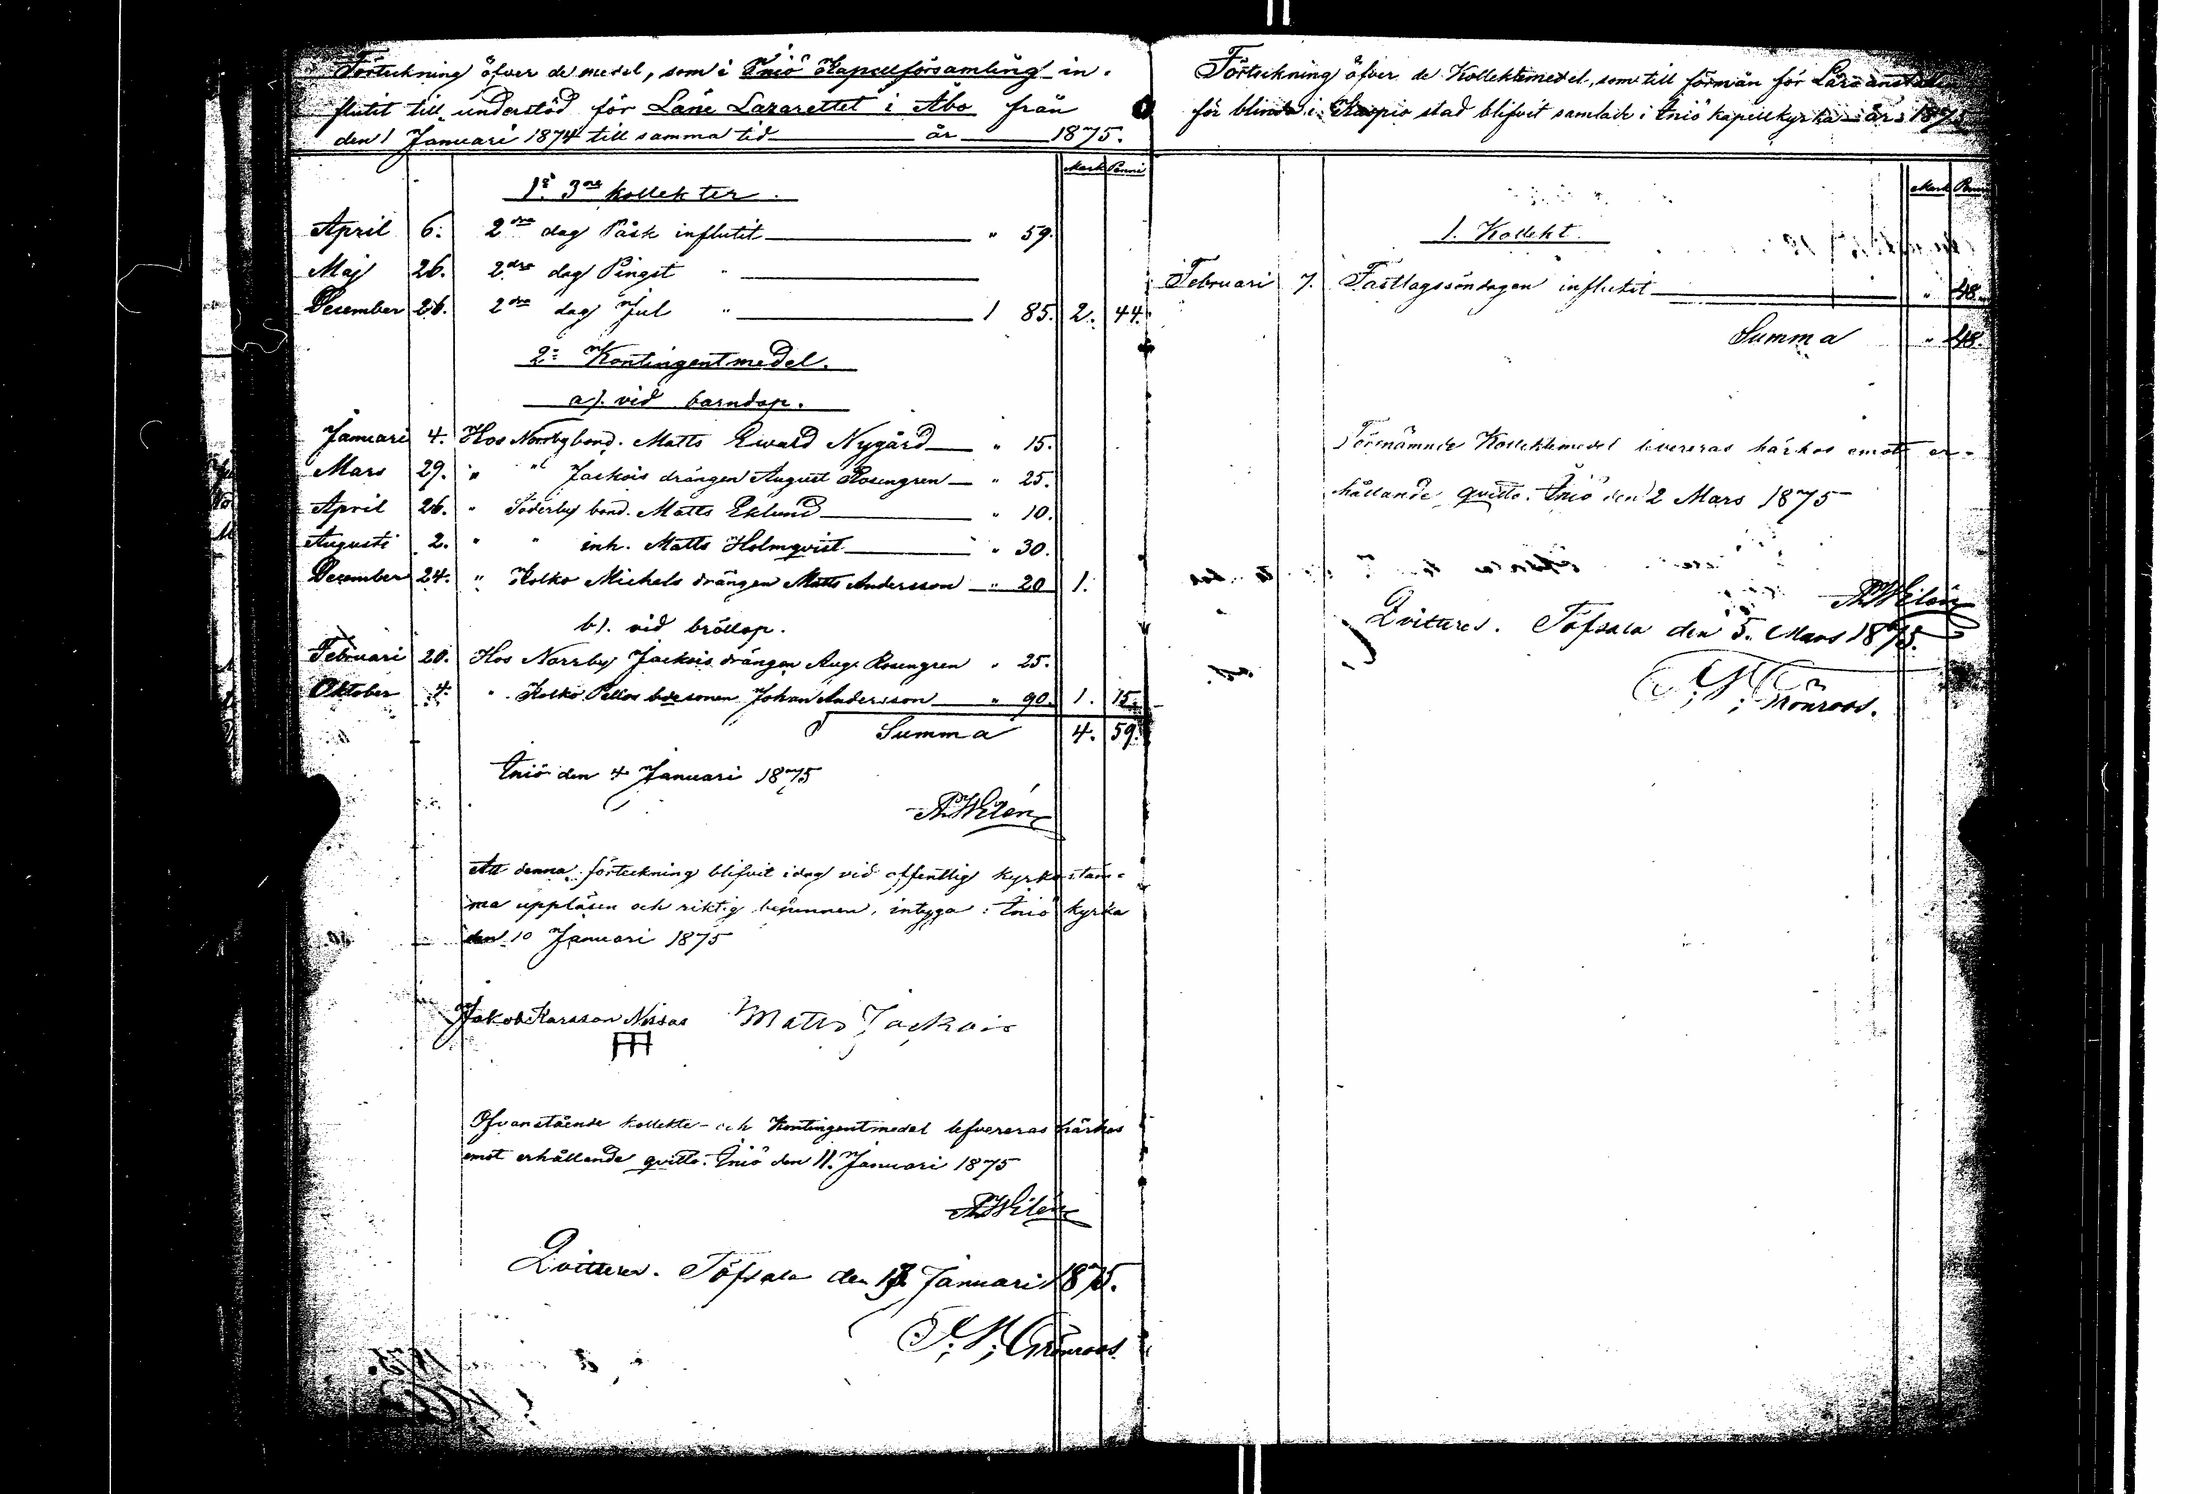 Förteckning öfver de medel, som i Iniö Kapellförsamling in-
flutit till understöd för Läne Lazarettet i Åbo från
den 1 Januari 1874 till samma tid år 1875.
Mark Penni
1º 3ne kollekter.
April 6. 2dra dag Påsk influtit " 59.
Maj 26. 2dra dag Pingst "
December 26. 2dra dag Jul " 1 85. 2. 44.
2º Kontingentmedel.
a). vid barndop.
Januari 4. Hos Norrby bond. Matts Ewald Nygård " 15.
Mars 29. " " Jackois drängen August Rosengren " 25.
April 26. " Söderby bond. Matts Eklund " 10.
Augusti 2. " " inh. Matts Holmqvist " 30.
December 24. " Kolko Michels drängen Matts Andersson " 20 1.
b). vid bröllop.
Februari 20. Hos Norrby Jackois drängen Aug. Rosengren " 25.
Oktober 4. " Kolko Pellas bdesonen Johan Andersson " 90. 1. 15.
Summa 4. 59.
Iniö den 4 Januari 1875
Wilén
Att denna förteckning blifvit idag vid offentlig kyrkostäm-
ma uppläsen och riktig befunnen, intyga: Iniö kyrka
den 10 Januari 1875
Jakob Karsson Nissas Matts Jackois
Ofvanstående kollekte- och Kontingentmedel lefvereras härhos
emot erhållande qvitto. Iniö den 11. Januari 1875
Wilén
Qvitteras. Töfsala den Januari 1875.
Grönroos.
Förteckning öfver de Kollektmedel, som till förmån för Läroanstalten
för blinda i Kuopio stad blifvit samlade i Iniö kapellkyrka år 1875
Mark Penni
1. Kollekt.
Februari 7. Fastlagssöndagen influtit " 48.
Summa " 48.
Förenämnde Kollektmedel levereras härhos emot er-
hållande qvitto. Iniö den 2 Mars 1875
Wilén
Qvitteras. Töfsala den 5. Mars 1875.
Grönroos.